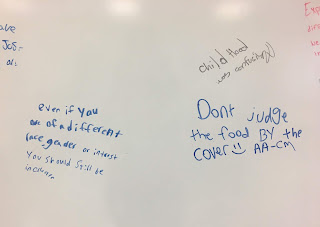 Jos-
even if you
are of a different
race, gender or interest
You should still be
childhood
was confusing
Dont judge
the food BY the
cover AA-CM
Exp